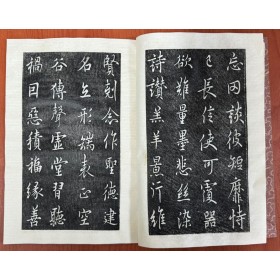 忘罔談彼短靡恃
己長信使可覆器
欲難量墨悲絲染
詩讚羔羊景行維
賢剋念作聖德建
名立形端表正空
谷傳聲虛堂習聽
禍因惡積福緣善